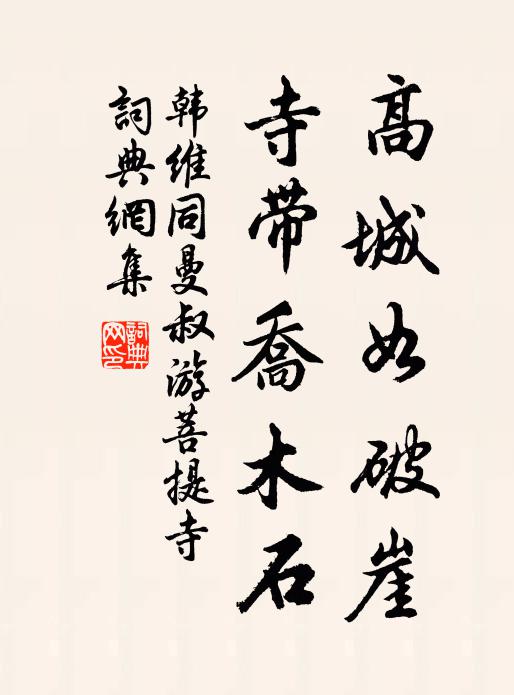 高城如破崖
寺帶喬木石
韩維同曼叔游菩提寺
詞典網集
詞典網印